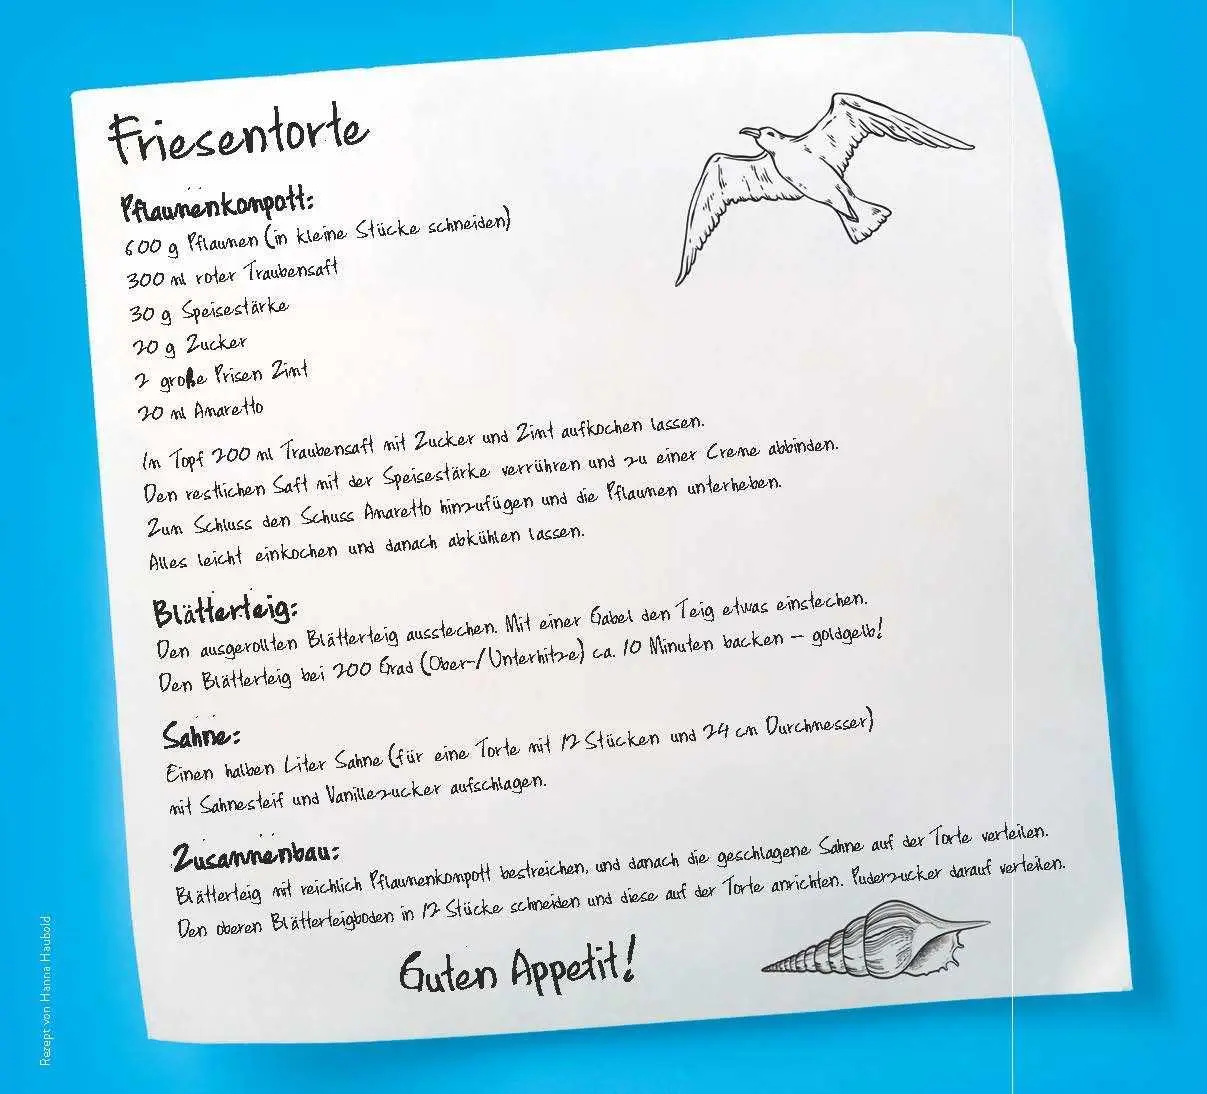 Friesentorte
Pflaumenkompott:
600 g Pflaumen (in kleine Stücke schneiden)
300 ml roter Traubensaft
30 g Speisestärke
20 g Zucker
2 große Prisen Zimt
20 ml Amaretto
Im Topf 200 ml Traubensaft mit Zucker und Zimt aufkochen lassen.
Den restlichen Saft mit der Speisestärke verrühren und zu einer Creme abbinden.
Zum Schluss den Schuss Amaretto hinzufügen und die Pflaumen unterheben.
Alles leicht einkochen und danach abkühlen lassen.
Blätterteig:
Den ausgerollten Blätterteig ausstechen. Mit einer Gabel den Teig etwas einstechen.
Den Blätterteig bei 200 Grad (Ober-/Unterhitze) ca. 10 Minuten backen – goldgelb!
Sahne:
Einen halben Liter Sahne (für eine Torte mit 12 Stücken und 24 cm Durchmesser)
mit Sahnesteif und Vanillezucker aufschlagen.
Zusammenbau:
Blätterteig mit reichlich Pflaumenkompott bestreichen, und danach die geschlagene Sahne auf der Torte verteilen.
Den oberen Blätterteigboden in 12 Stücke schneiden und diese auf der Torte anrichten. Puderzucker darauf verteilen.
Guten Appetit!
Rezept von Hanna Haubold